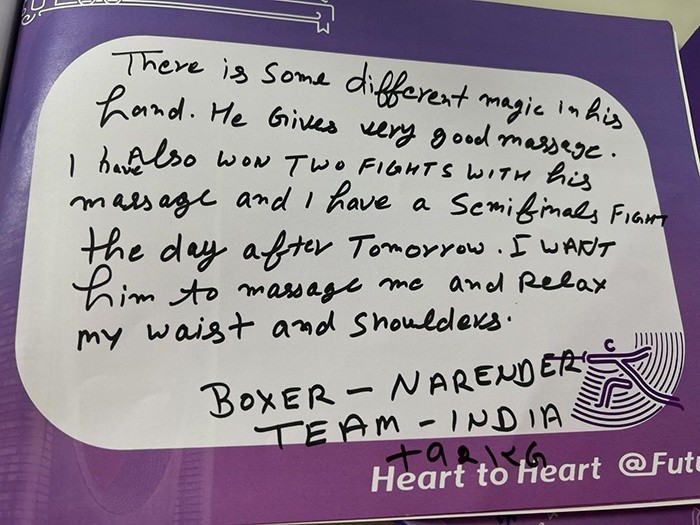 There is some different magic in his
hand. He Gives very good massage.
I have Also WON TWO FIGHTS WITH his
massage and I have a Semifinals FIGHT
the day after Tomorrow. I WANT
him to massage me and Relax
my waist and shoulders.
C
BOXER - NARENDER
TEAM - INDIA
+92KG
Heart to Heart @Futu